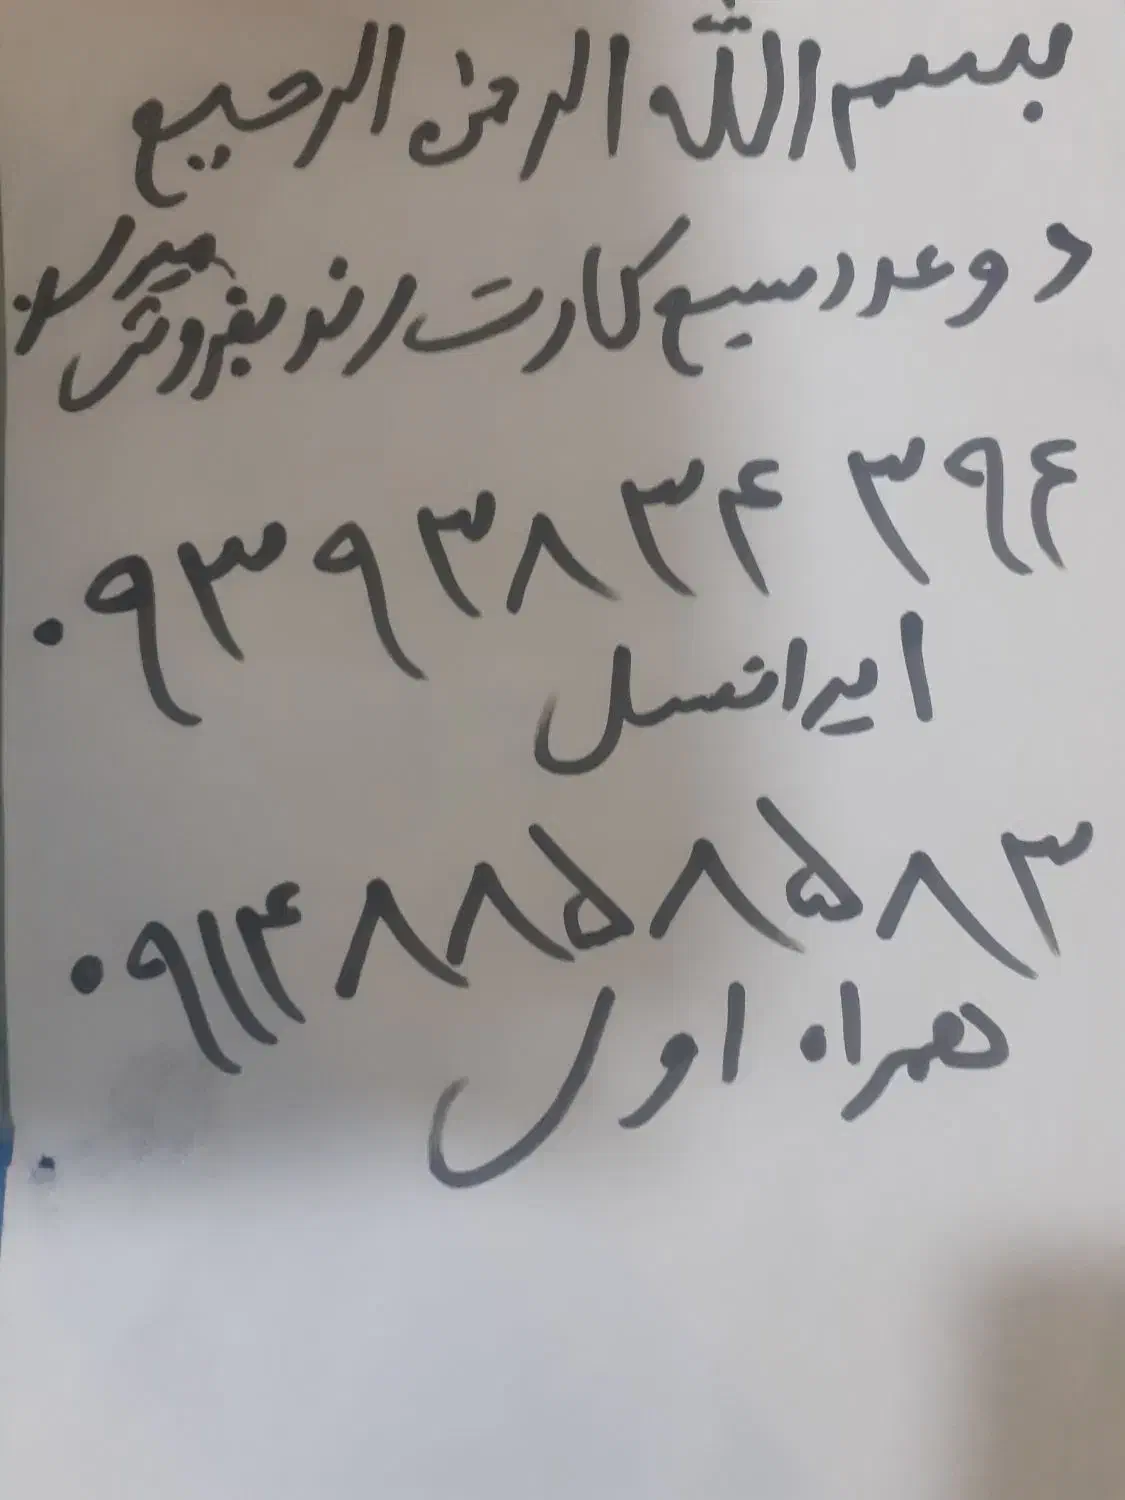 بسم الله الرحمن الرحیم
دو عدد سیم کارت رند بفروش میرسد
۰۹۳۹۳۸۳۴۳۹۴
ایرانسل
۰۹۱۱۴۸۸۵۸۵۸۳
همراه اول